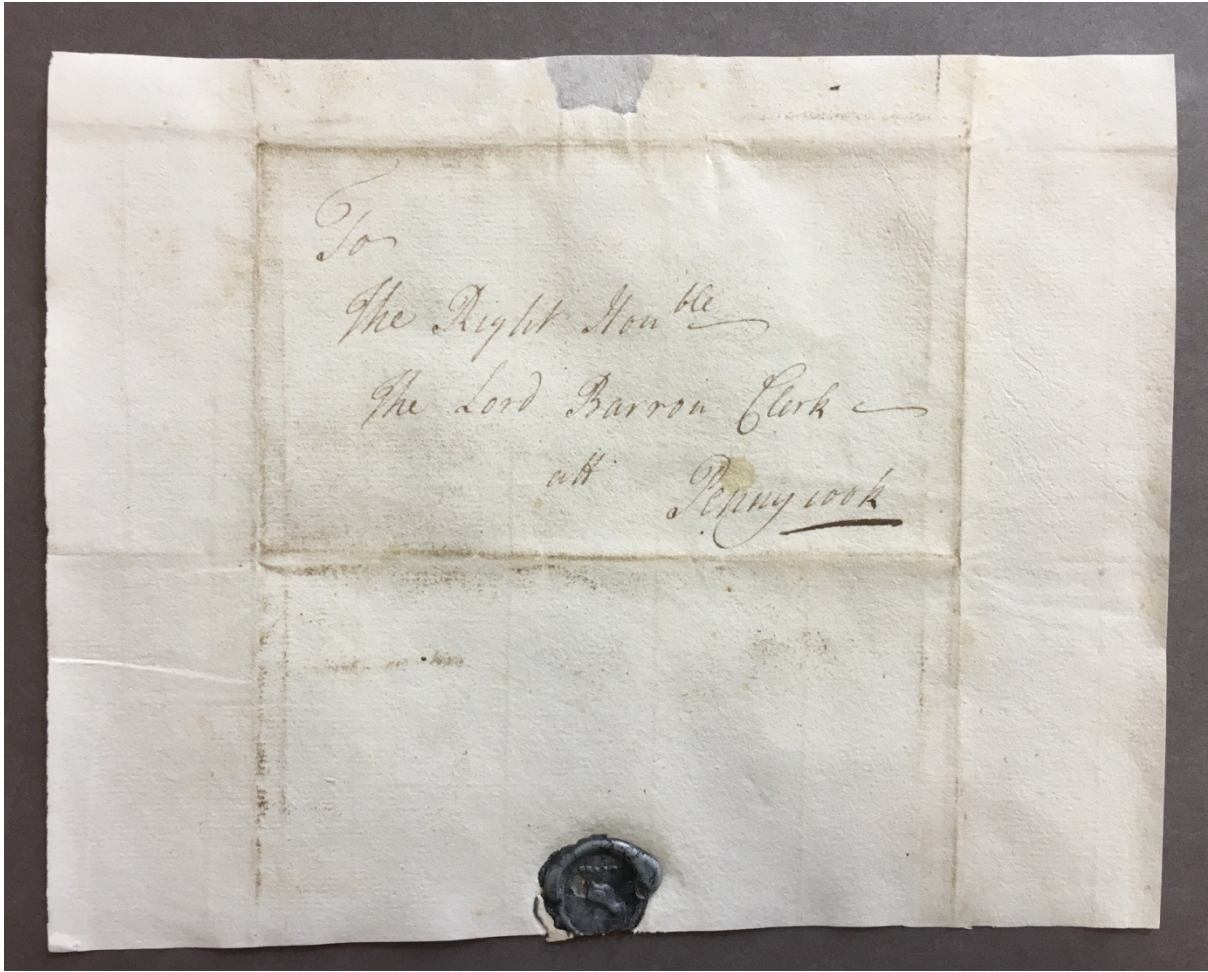 To
The Right Honble
The Lord Barron Clerk
att Pennycook